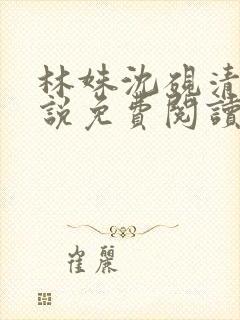 林妹沈硯清
說免費閱讀
崔麗